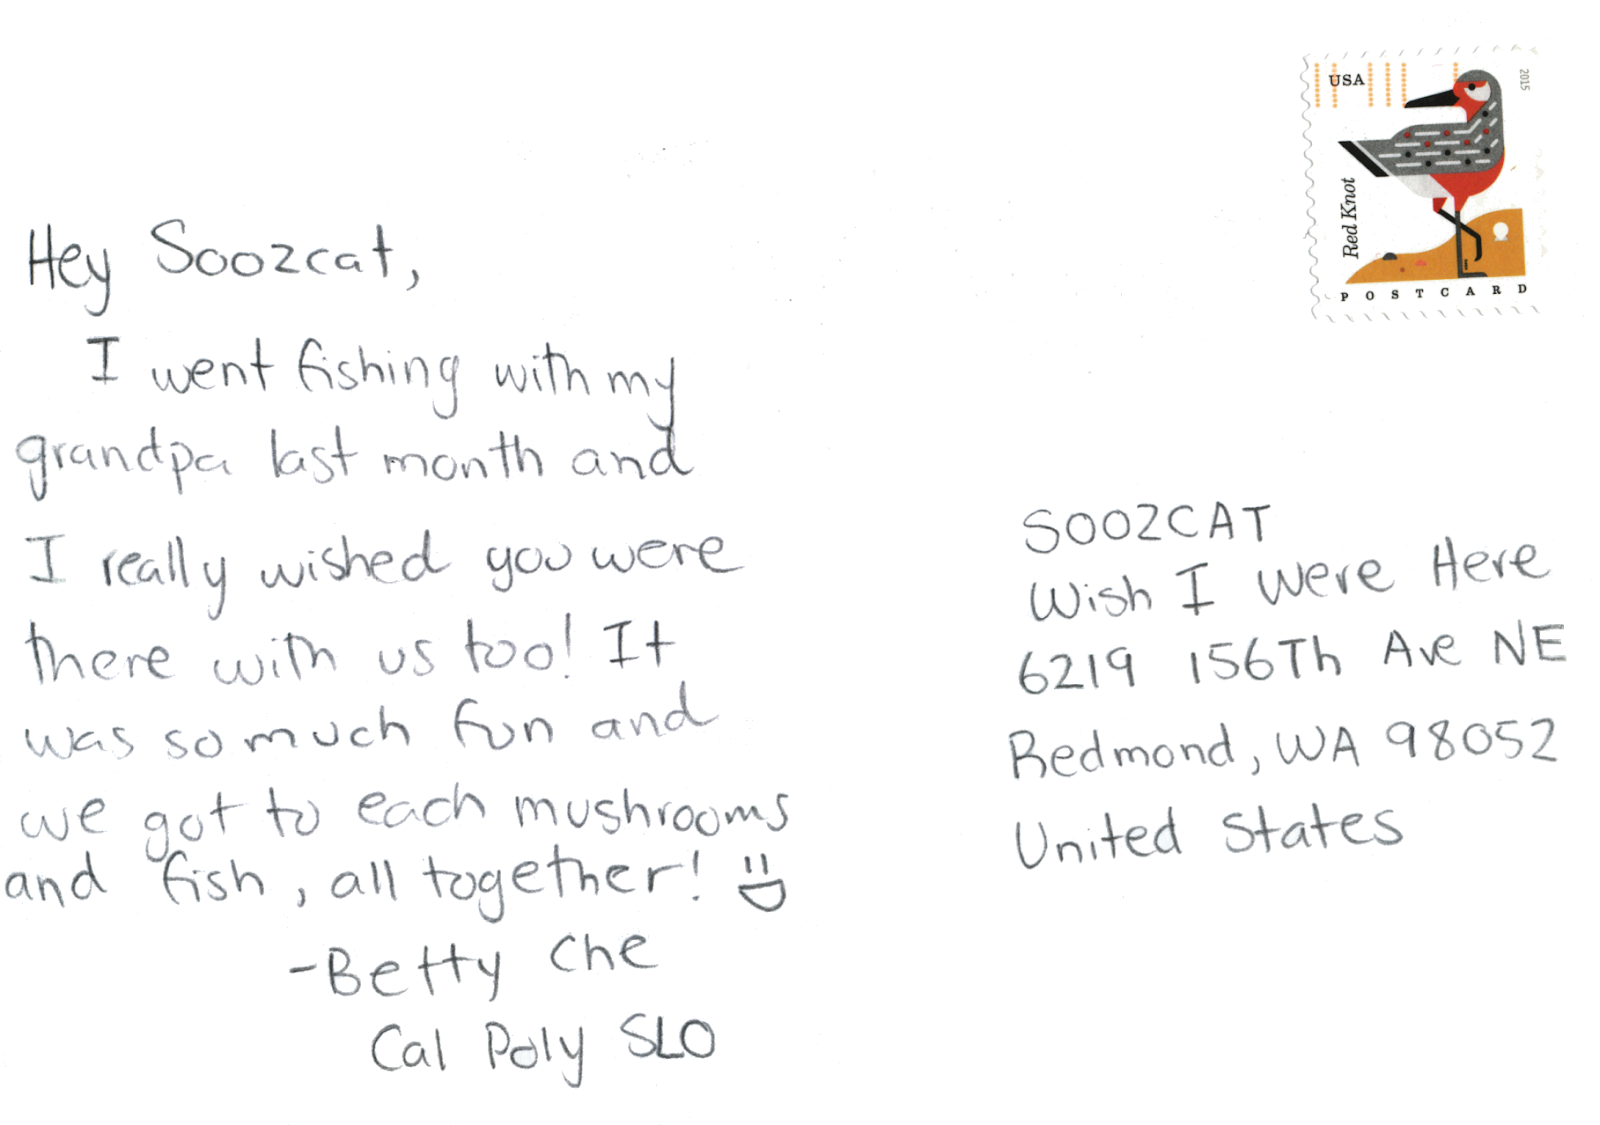 Hey Soozcat,
I went fishing with my
grandpa last month and
I really wished you were
there with us too! It
was so much fun and
we got to each mushrooms
and fish, all together!
-Betty Che
Cal Poly SLO
USA
2015
Red Knot
POSTCARD
SOOZCAT
Wish I Were Here
6219 156Th Ave NE
Redmond, WA 98052
United States